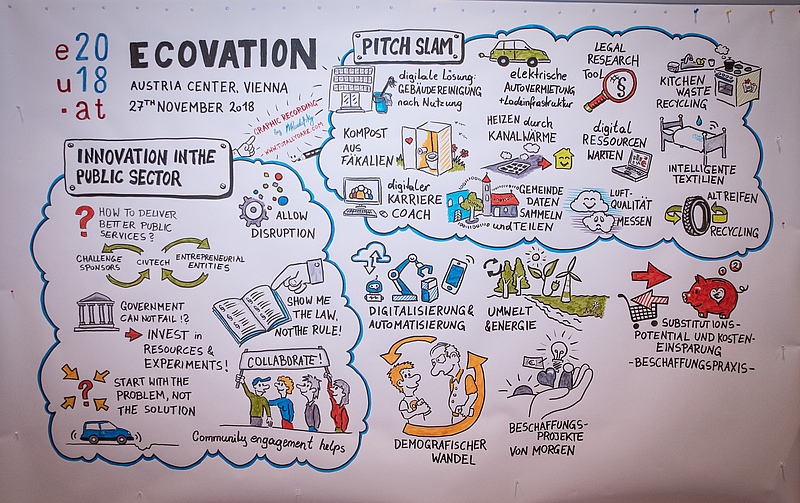 e20
u18
.at
ECOVATION
AUSTRIA CENTER, VIENNA
27TH NOVEMBER 2018
GRAPHIC RECORDING
by
WWW.TOTALLYDARE.COM
INNOVATION IN THE
PUBLIC SECTOR
? HOW TO DELIVER
BETTER PUBLIC
SERVICES?
CHALLENGE
SPONSORS
CIVTECH
ENTREPRENEURIAL
ENTITIES
ALLOW
DISRUPTION
GOVERNMENT
CAN NOT FAIL!?
INVEST in
RESOURCES &
EXPERIMENTS!
SHOW ME
THE LAW,
NOT THE RULE!
?
START WITH THE
PROBLEM, NOT
THE SOLUTION
COLLABORATE!
Community engagement helps
PITCH SLAM
digitale Lösung:
GEBÄUDEREINIGUNG
nach Nutzung
elektrische
AUTOVERMIETUNG
+Ladeinfrastruktur
LEGAL
RESEARCH
Tool
§
KITCHEN
WASTE
RECYCLING
KOMPOST
AUS
FÄKALIEN
HEIZEN durch
KANALWÄRME
digital
RESSOURCEN
WARTEN
INTELLIGENTE
TEXTILIEN
digitaler
KARRIERE
COACH
GEMEINDE
DATEN
SAMMELN
und TEILEN
LUFT-
QUALITÄT
MESSEN
ALTREIFEN
RECYCLING
DIGITALISIERUNG &
AUTOMATISIERUNG
UMWELT
& ENERGIE
SUBSTITUTIONS-
POTENTIAL UND KOSTEN-
EINSPARUNG
-BESCHAFFUNGSPRAXIS-
DEMOGRAFISCHER
WANDEL
BESCHAFFUNGS-
PROJEKTE
VON MORGEN